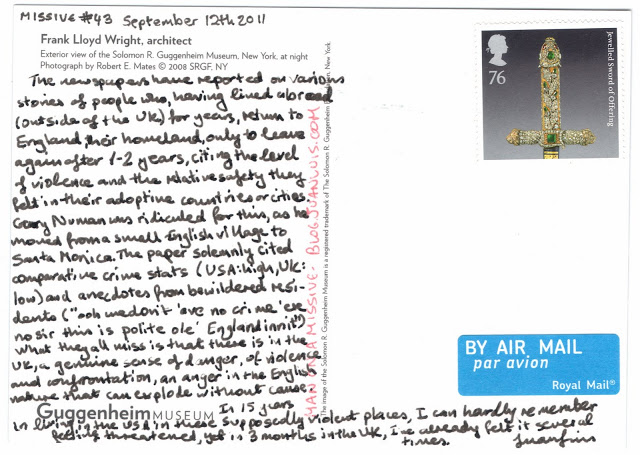 MISSIVE #43 September 12th 2011
Frank Lloyd Wright, architect
Exterior view of the Solomon R. Guggenheim Museum, New York, at night
Photograph by Robert E. Mates © 2008 SRGF, NY
The newspapers have reported on various
stories of people who, having lived abroad
(outside of the UK) for years, return to
England, their homeland, only to leave
again after 1-2 years, citing the level
of violence and the relative safety they
felt in their adoptive countries or cities.
Gary Numan was ridiculed for this, as he
moved from a small English village to
Santa Monica. The paper solemnly cited
comparative crime stats (USA: high, UK:
low) and anecdotes from bewildered resi-
dents ("ooh we don't 'ave no crime 'ere
no sir this is polite ole' England innit")
What they all miss is that there is in the
UK, a genuine sense of danger, of violence
and confrontation, an anger in the English
nature that can explode without cause.
Guggenheim MUSEUM
In 15 years
in living in the USA in these supposedly violent places, I can hardly remember
feeling threatened, yet in 3 months in the UK, I've already felt it several
times.
MAN ON A MISSIVE - BLOG.JUANLUIS.COM
The image of the Solomon R. Guggenheim Museum is a registered trademark of The Solomon R. Guggenheim
New York
76
Jewelled Sword of Offering
BY AIR MAIL
par avion
Royal Mail®